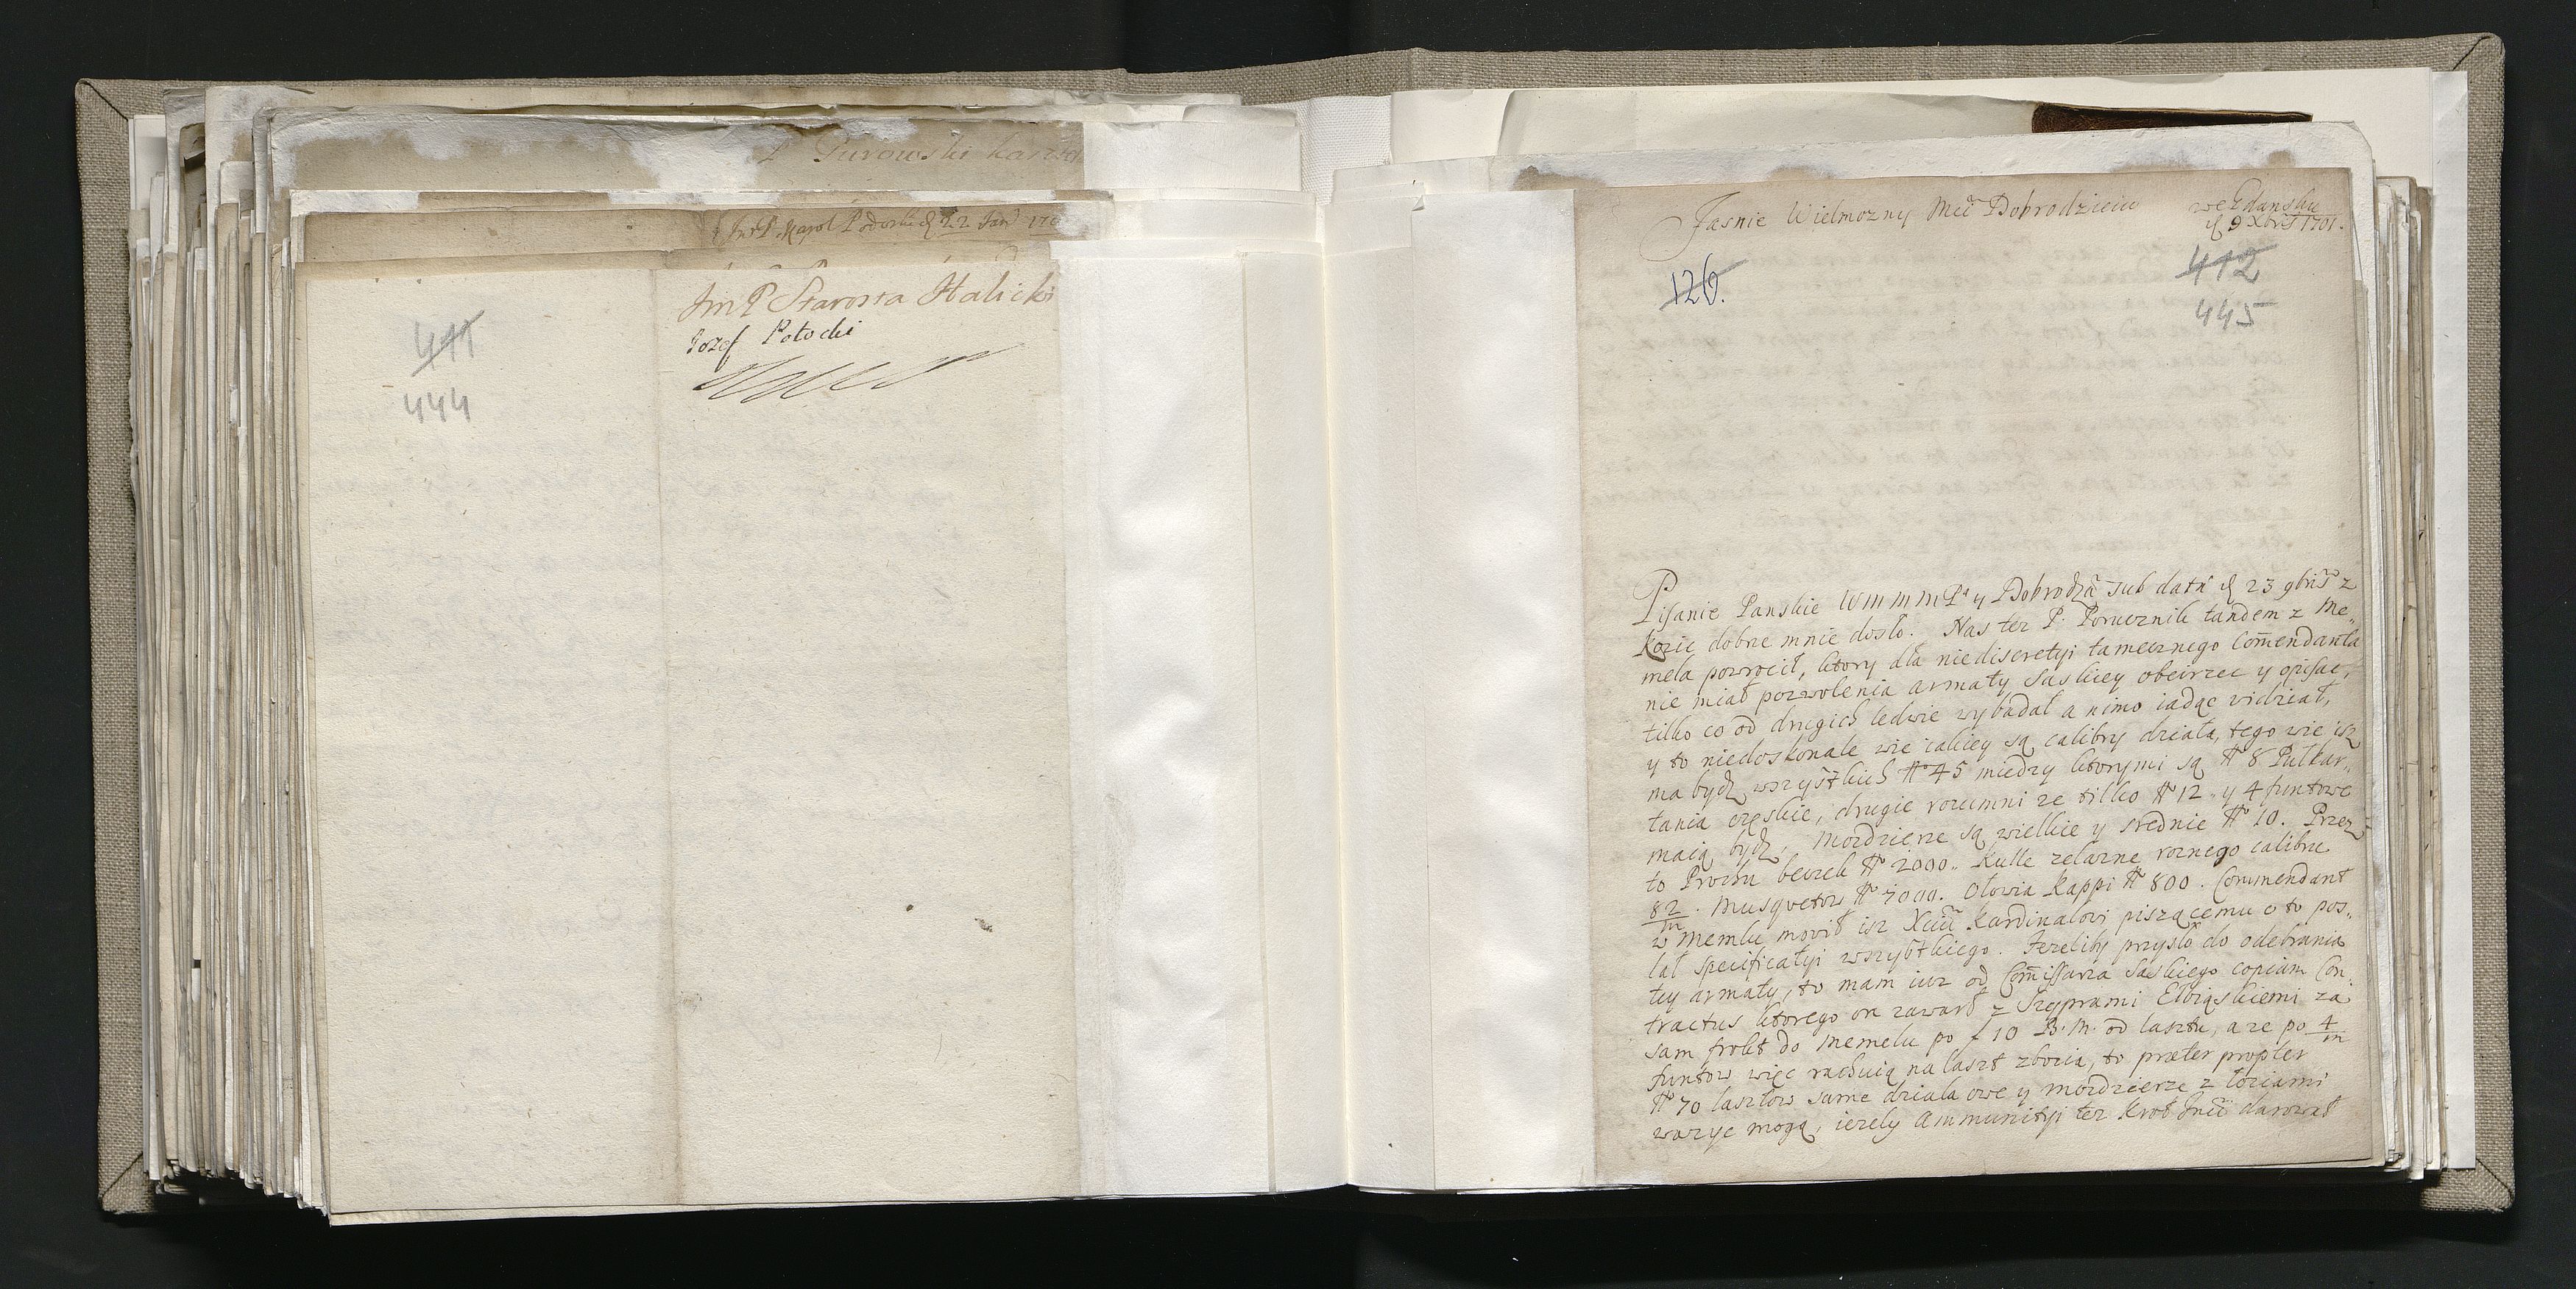 P Turowski
JmP. Karol Podoski d 22 Jan 170
JmP Starosta Halicki
Jozef Potocki
411
444
Jasnie Wielmozny Mci Dobrodzieiu
we Gdansku
d 9 Xbris 1701.
126.
412
445
Pisanie Panskie WMMMPa y Dobrodza sub data d 23 9bris z
Kozic dobrze mnie doszlo. Nas tez P. Porucznik tandem z Me„
mela powrocił, ktory dla niediscretyi tamecznego Comendanta
nie miał pozwolenia armaty Saskiey obeirzec y opisac,
tilko co od drugich ledwie wybadal a nimo iadąc vidział,
y to niedoskonale wie iakiey są calibry działa, tego wie isz
ma bydz wszystkich No 45 miedzy ktorymi są No 8 Pulkar„
tania oręskie, drugie rozumni ze tilko No 12 „ y 4 funtowe
maią bydz, Mozdzierze są wielkie y srednie No 10. Przez
to Prochu beczek No 2000„ Kulle zelazne roznego calibru
82/m. Musquetow No 7000. Olowia Kappi No 800. Commendant
w Memlu movił isz Xciu Kardinalovi piszącemu o to pos„
lał specificatyi wszystkiego. Jezeliby przyslo do odebrania
tey armaty, to mam iuz od Comissarza Saskiego copiam Con
tractus ktorego on zawarł z Szyprami Elbiąskiemi za
sam frokt do Memelu po f 10 B. M. od lasztu, a ze po 4/m
funtow więc rachuią na laszt zboza, to præter propter
No 70 lasztow same działa owe y mozdzierze z lozami
wazyc mogą, iezely Ammunityi tez Krol Jmci darował